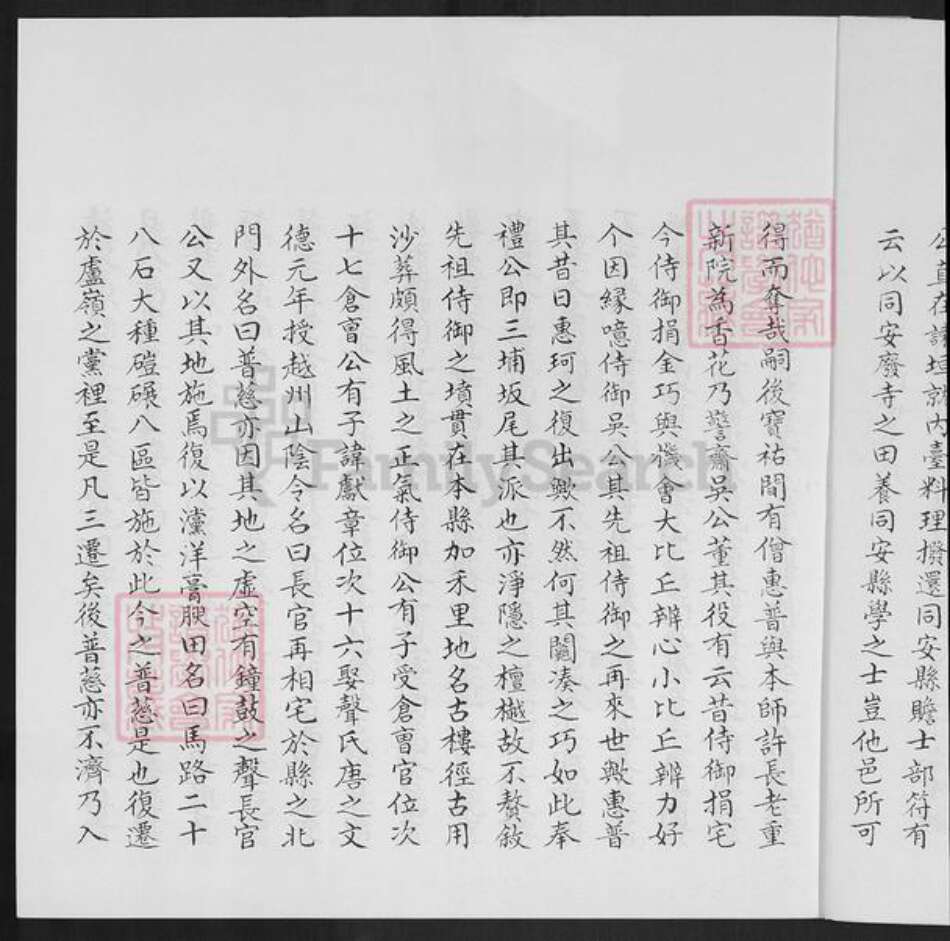 公真在諸垣京內臺料理撥還同安縣贍士部符有
云以同安廢寺之田養同安縣學之士豈他邑所可
得而奪哉嗣後寶祐間有僧惠普與本師許長老重
新院為香花乃警齋吳公董其役有云昔侍御捐宅
今侍御捐金巧與機會大比丘辨心小比丘辨力好
个因緣噫侍御吳公其先祖侍御之再來世歟惠普
其昔日惠珂之復出歟不然何其鬬湊之巧如此奉
禮公即三埔坂尾其派也亦淨隱之檀樾故不贅敘
先祖侍御之墳貫在本縣加禾里地名古樓徑古用
沙葬頗得風土之正氣侍御公有子受倉曹官位次
十七倉曹公有子諱獻章位次十六娶聲氏唐之文
德元年授越州山陰令名曰長官再相宅於縣之北
門外名曰普慈亦因其地之虛空有鐘鼓之聲長官
公又以其地施焉復以灙洋膏腴田名曰馬路二十
八石大種磑碾八區皆施於此今之普慈是也復遷
於盧嶺之黨裡至是凡三遷矣後普慈亦不濟乃入
FamilySearch